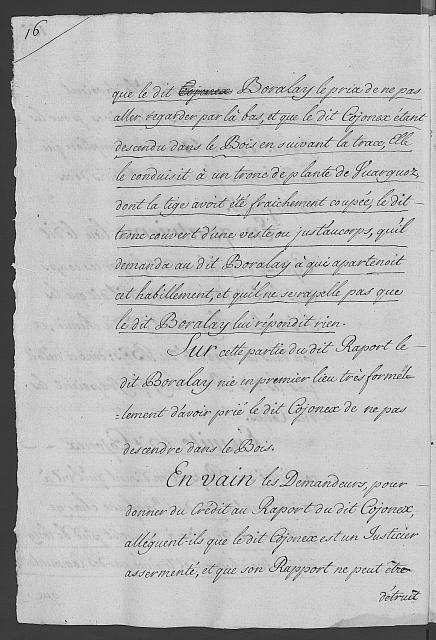 16
que le dit Cojonex Boralay le pria de ne pas
aller regarder par là bas, et que le dit Cojonex étant
descendu dans le Bois en suivant la trace, Elle
le conduisit à un tronc de plante de Vuarguoz,
dont la tige avoit été fraichement coupée, le dit
tronc couvert d'une veste ou justaucorps, qu'il
demanda au dit Boralay à qui apartenoit
cet habillement, et qu'il ne se rapelle pas que
le dit Boralay lui répondit rien.
Sur cette partie du dit Raport le
dit Boralay nie en premier lieu très formél-
-lement d'avoir prié le dit Cojonex de ne pas
descendre dans le Bois.
En vain les Demandeurs, pour
donner du Crédit au Raport du dit Cojonex,
alléguent-ils que le dit Cojonex est un Justicier
assermenté, et que son Rapport ne peut être
détruit